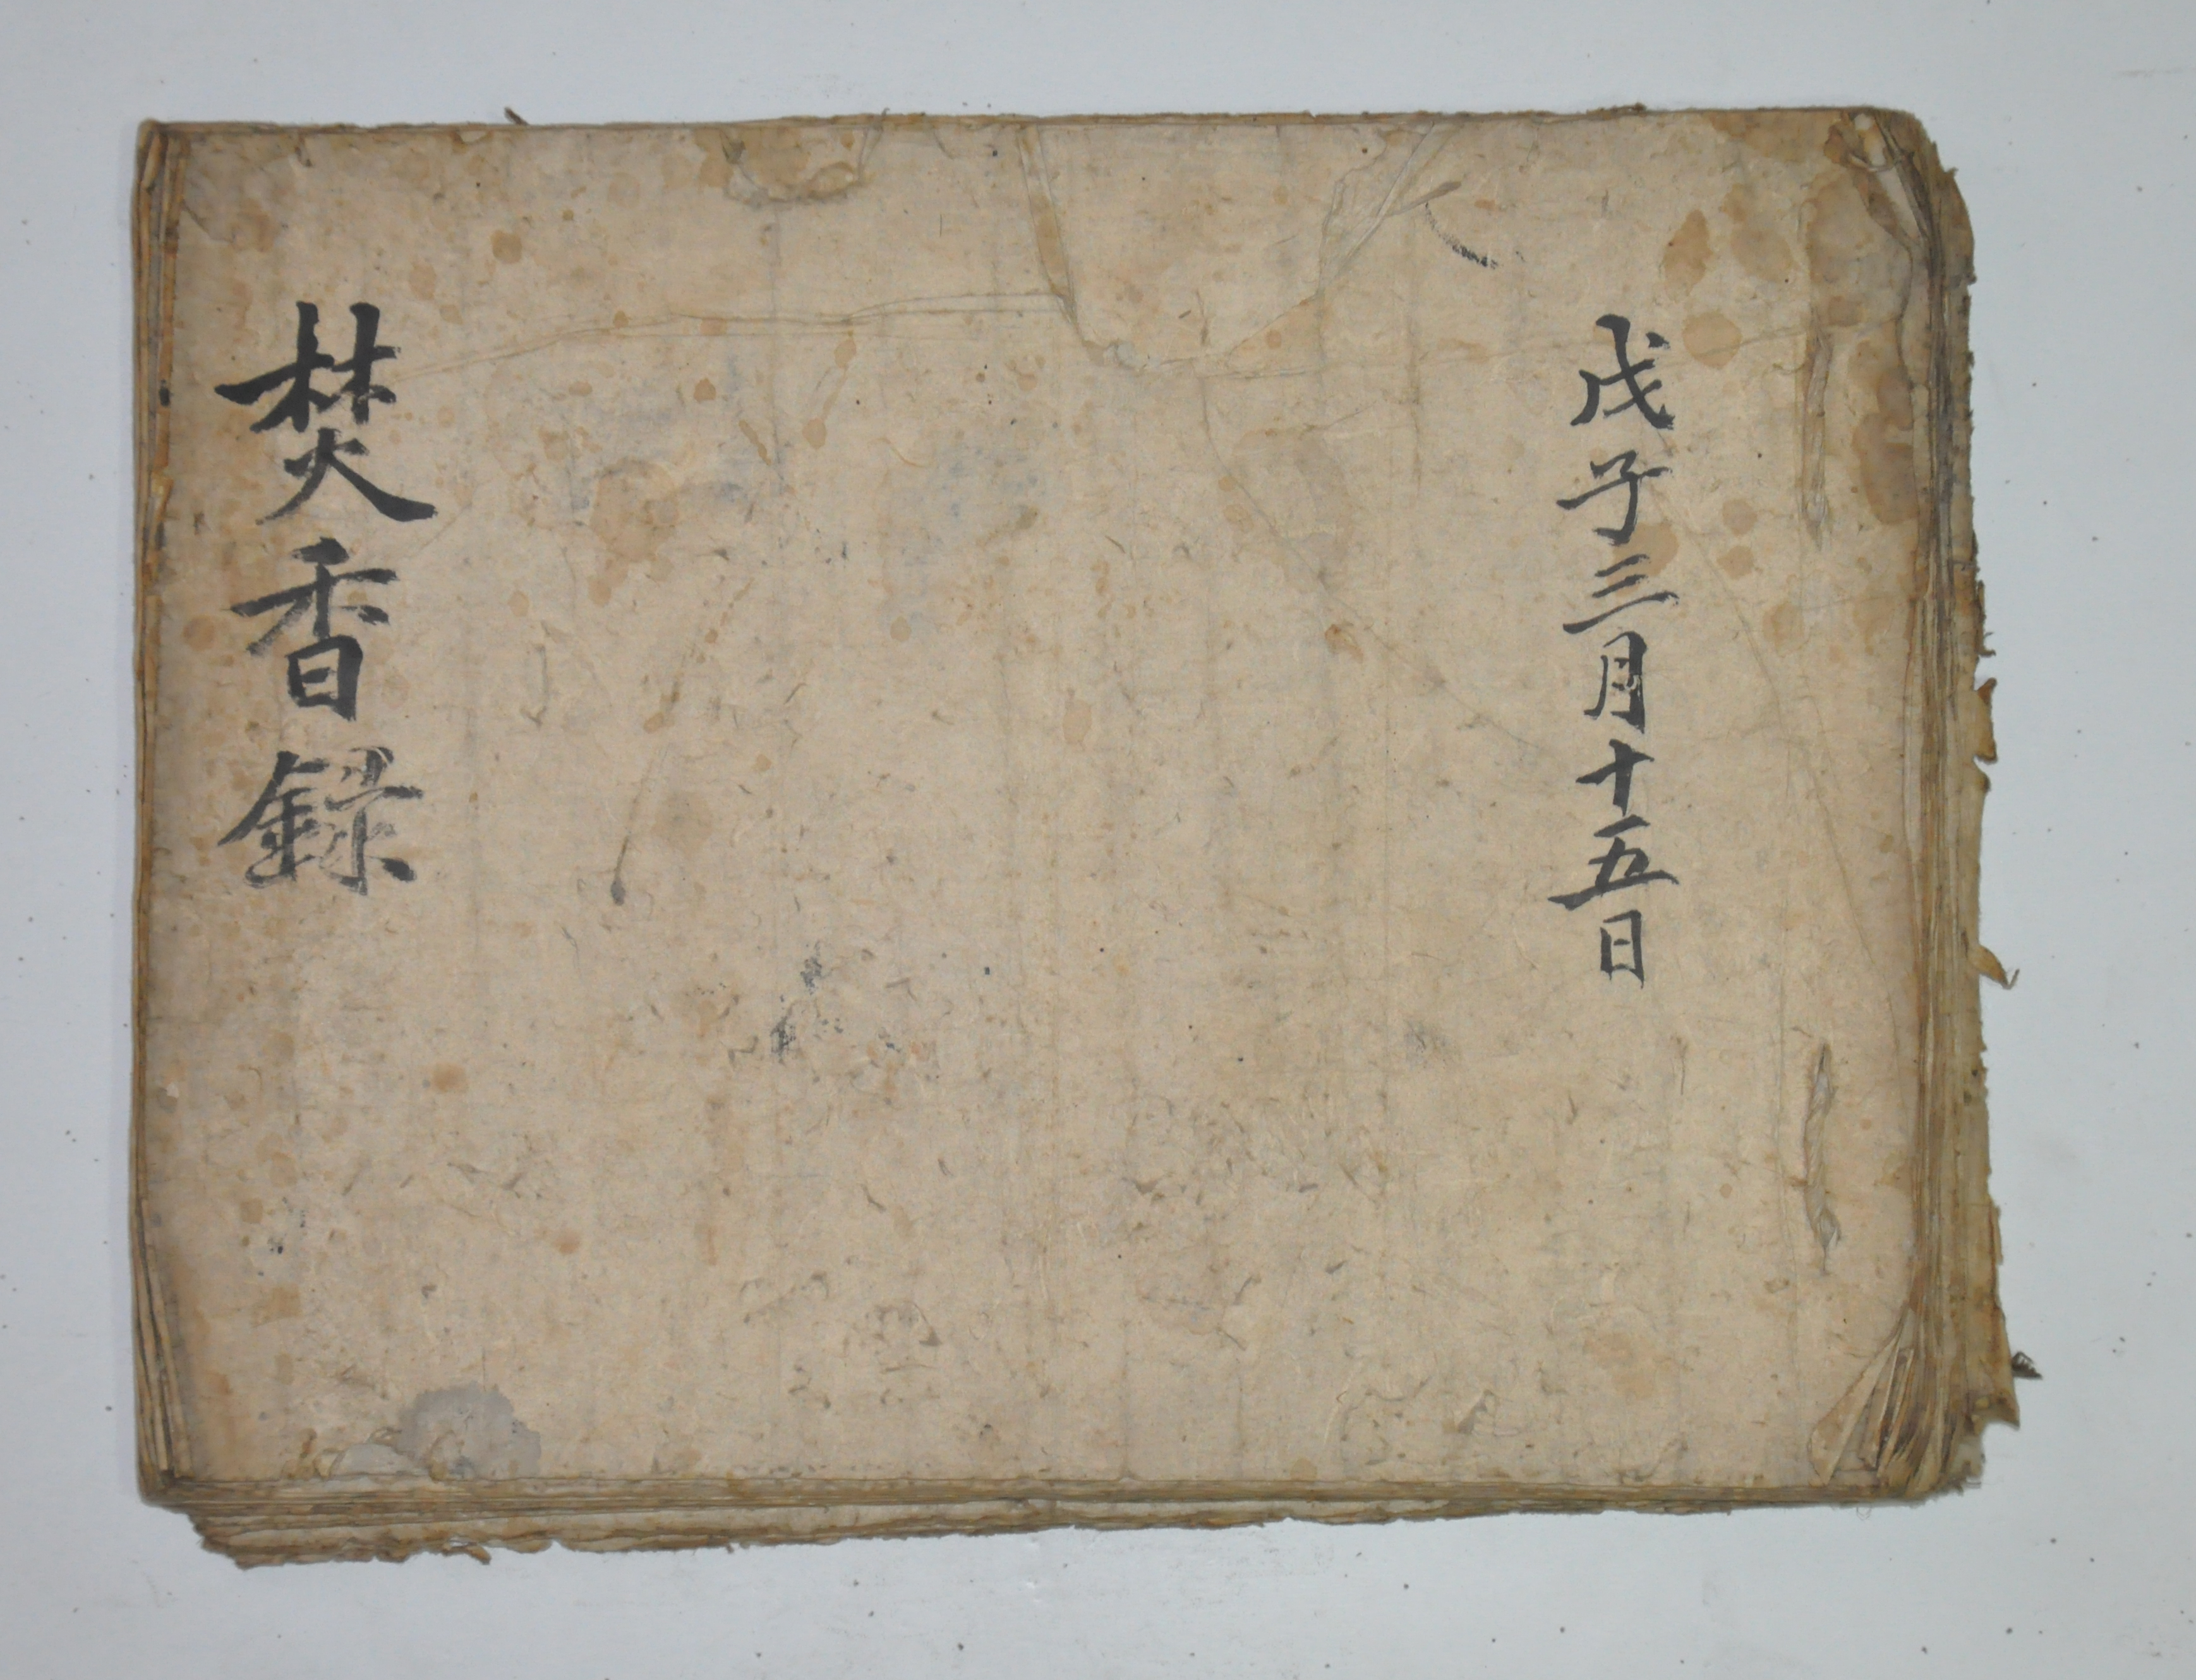 戊子三月十五日
焚香録